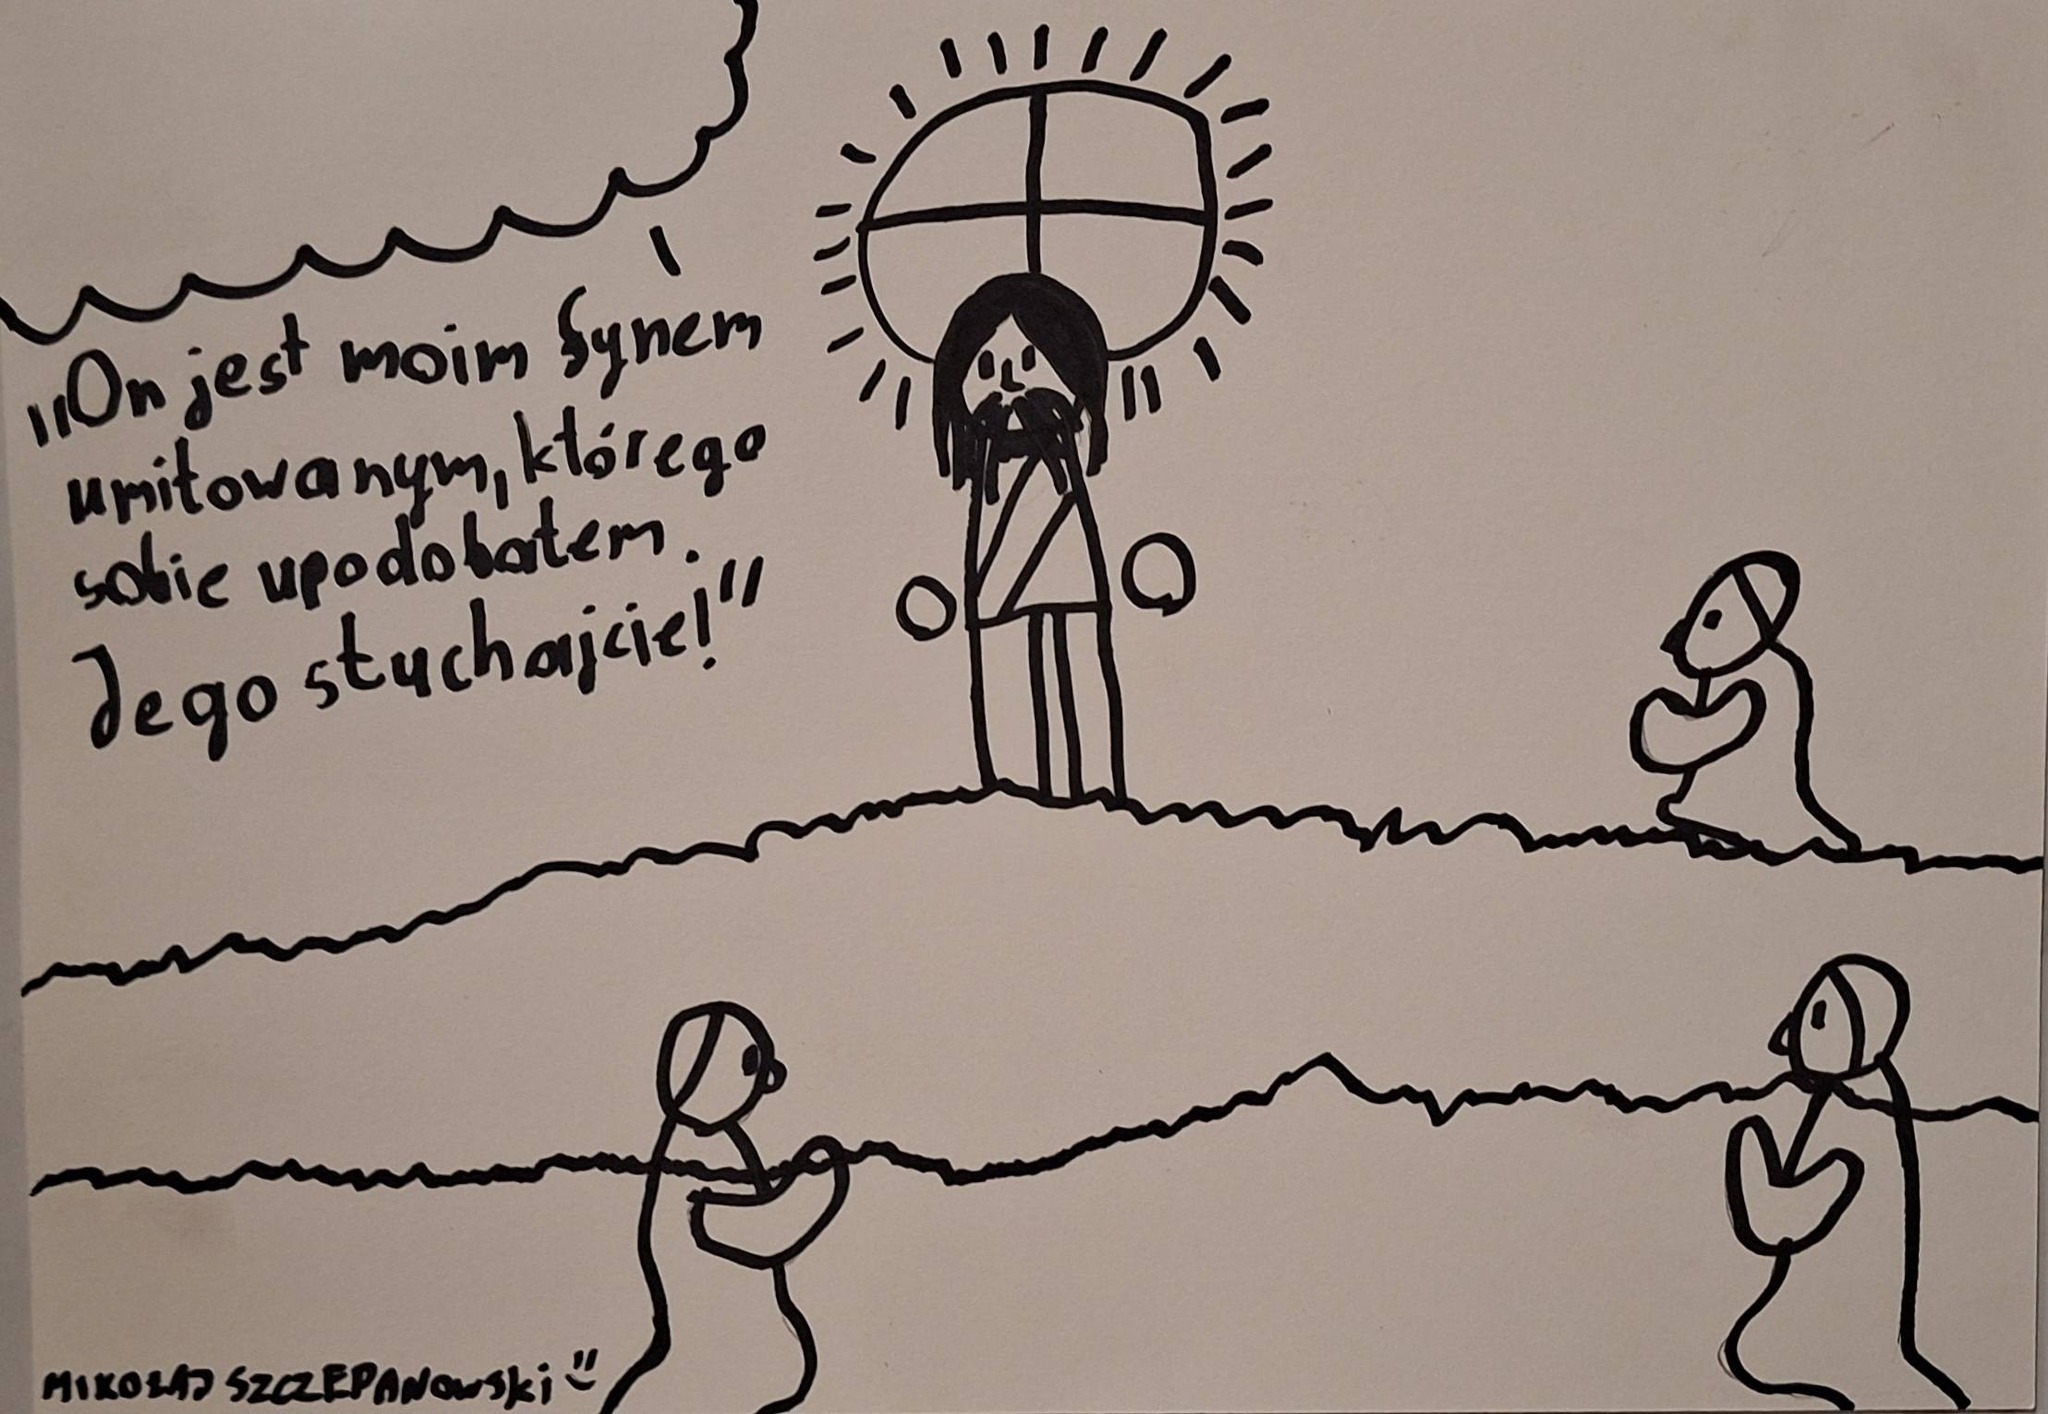 „On jest moim Synem
umiłowanym, którego
sobie upodobałem.
Jego słuchajcie!”
MIKOŁAJ SZCZEPANOWSki